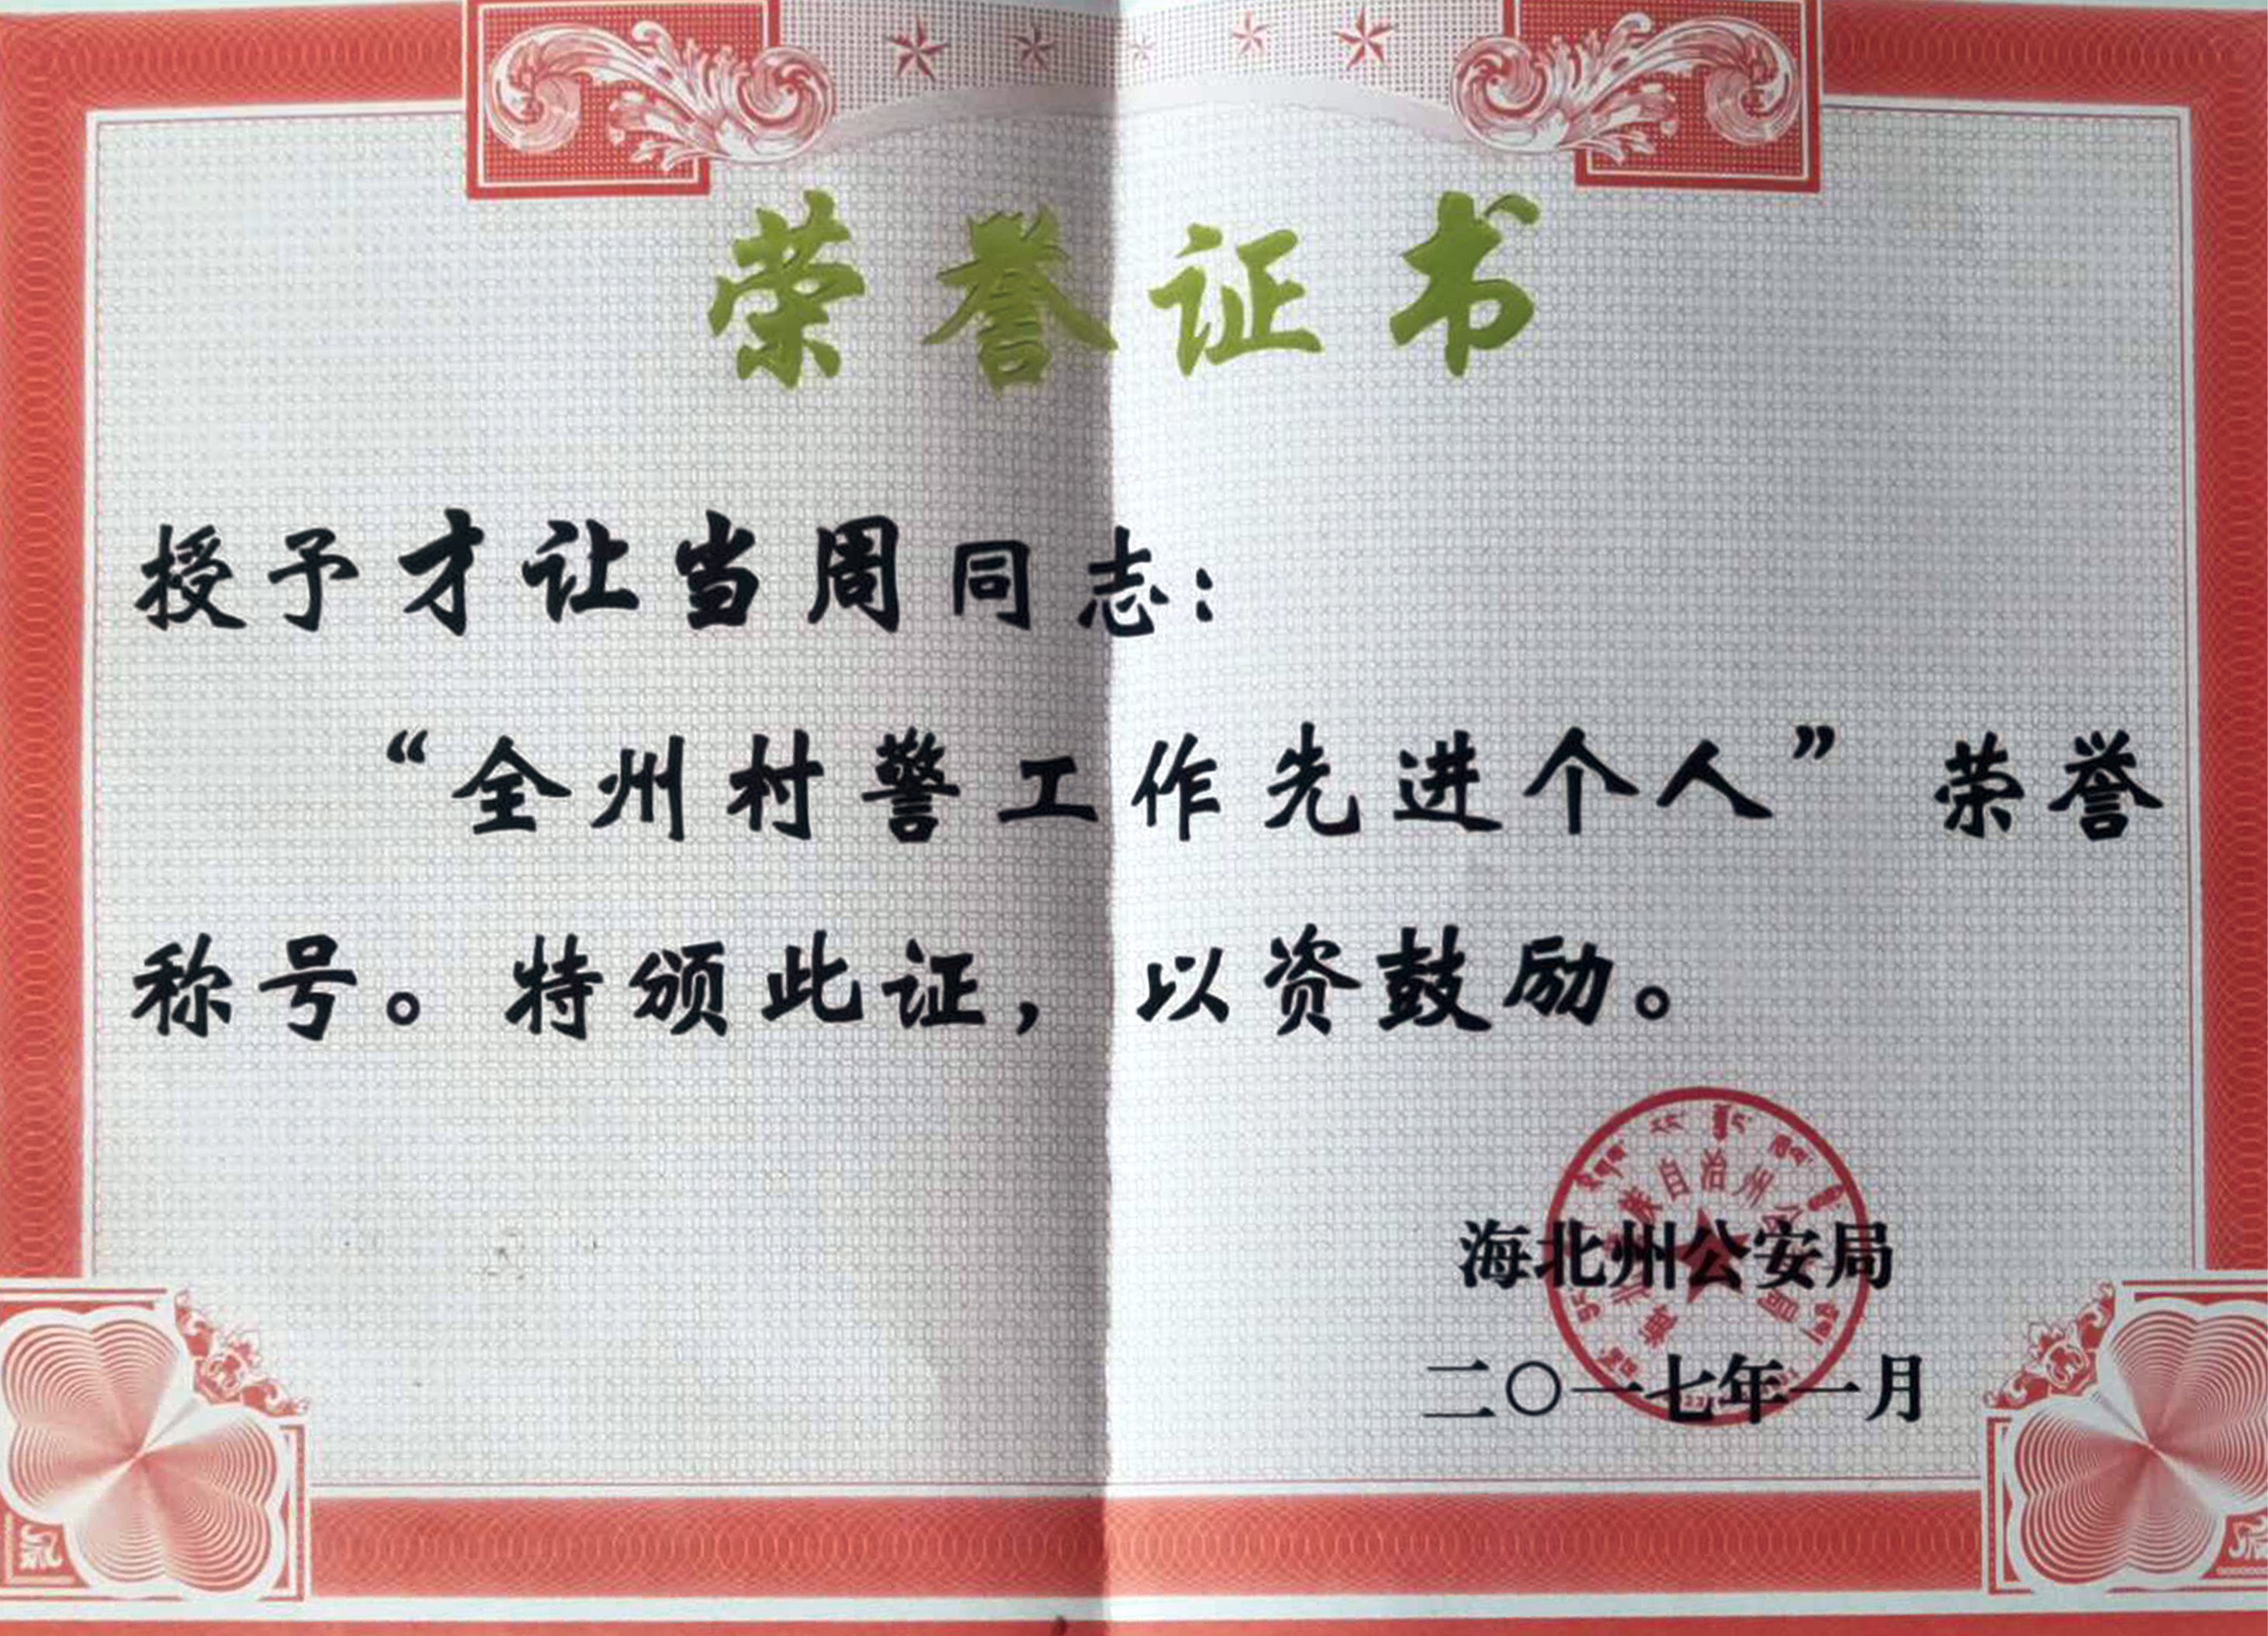 荣誉证书
授予才让当周同志：
“全州村警工作先进个人”荣誉
称号。特颁此证，以资鼓励。
海北州公安局
二〇一七年一月